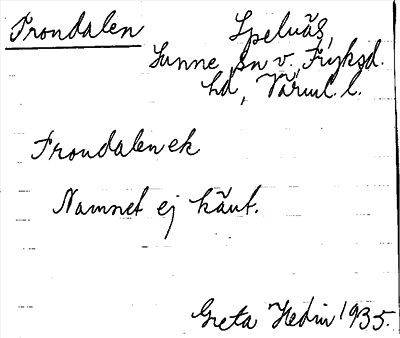 Frondalen
Spelnäs,
Sunne sn v. Fryksd.
hd, Värml. l.
Frondalen ek
Namnet ej känt.
Greta Hedin 1935.